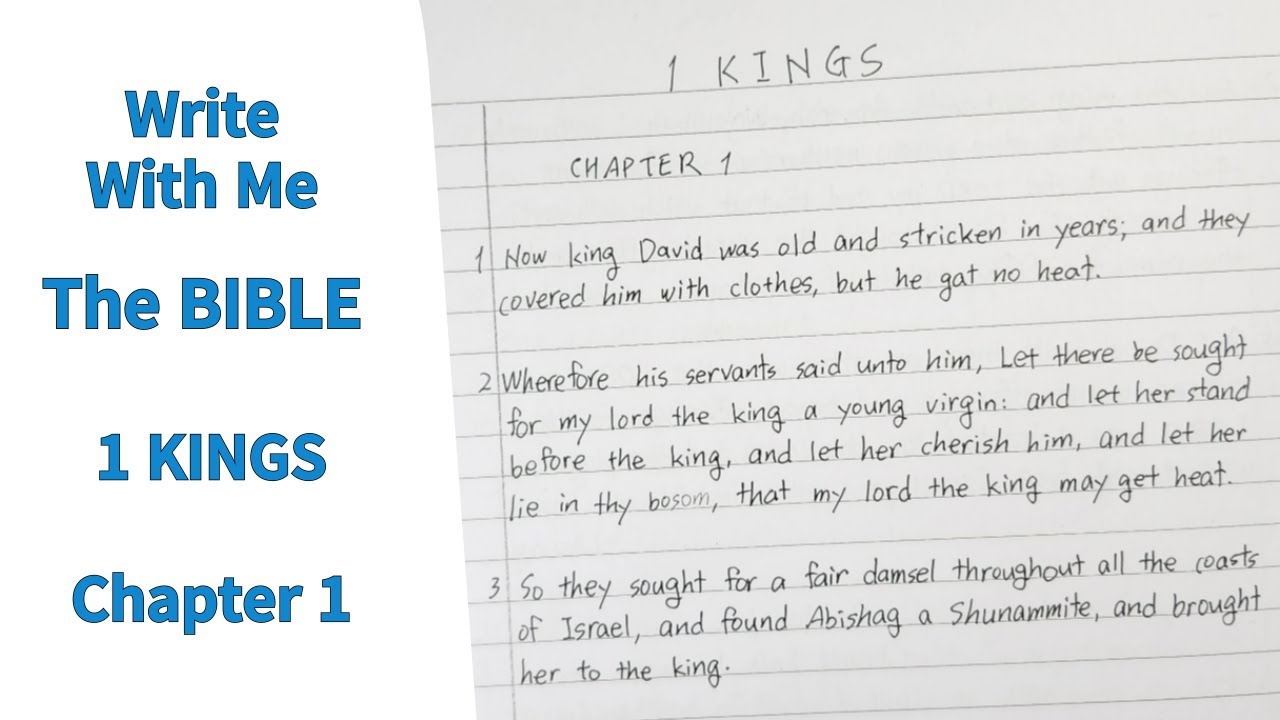 Write
With Me
The BIBLE
1 KINGS
Chapter 1
1 KINGS
CHAPTER 1
1 Now king David was old and stricken in years; and they
covered him with clothes, but he gat no heat.
2 Wherefore his servants said unto him, Let there be sought
for my lord the king a young virgin: and let her stand
before the king, and let her cherish him, and let her
lie in thy bosom, that my lord the king may get heat.
3 So they sought for a fair damsel throughout all the coasts
of Israel, and found Abishag a Shunammite, and brought
her to the king.